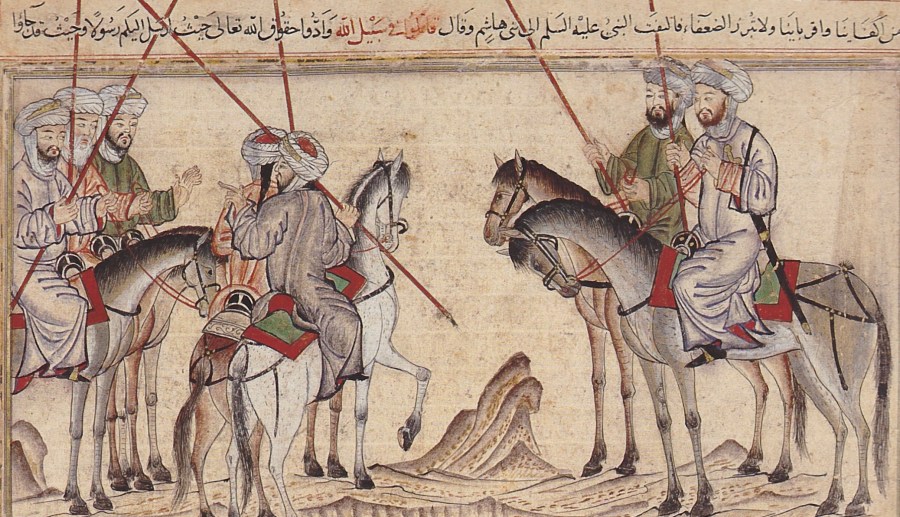 من اكفاينا واقرباينا ولا نبرز الضعفاء فالتفت النبي عليه السلم الى بني هاشم وقال قاتلوا في سبيل الله وادوا حقوق الله تعالى حيث ارسل اليكم رسولا وحيث قد جاوا